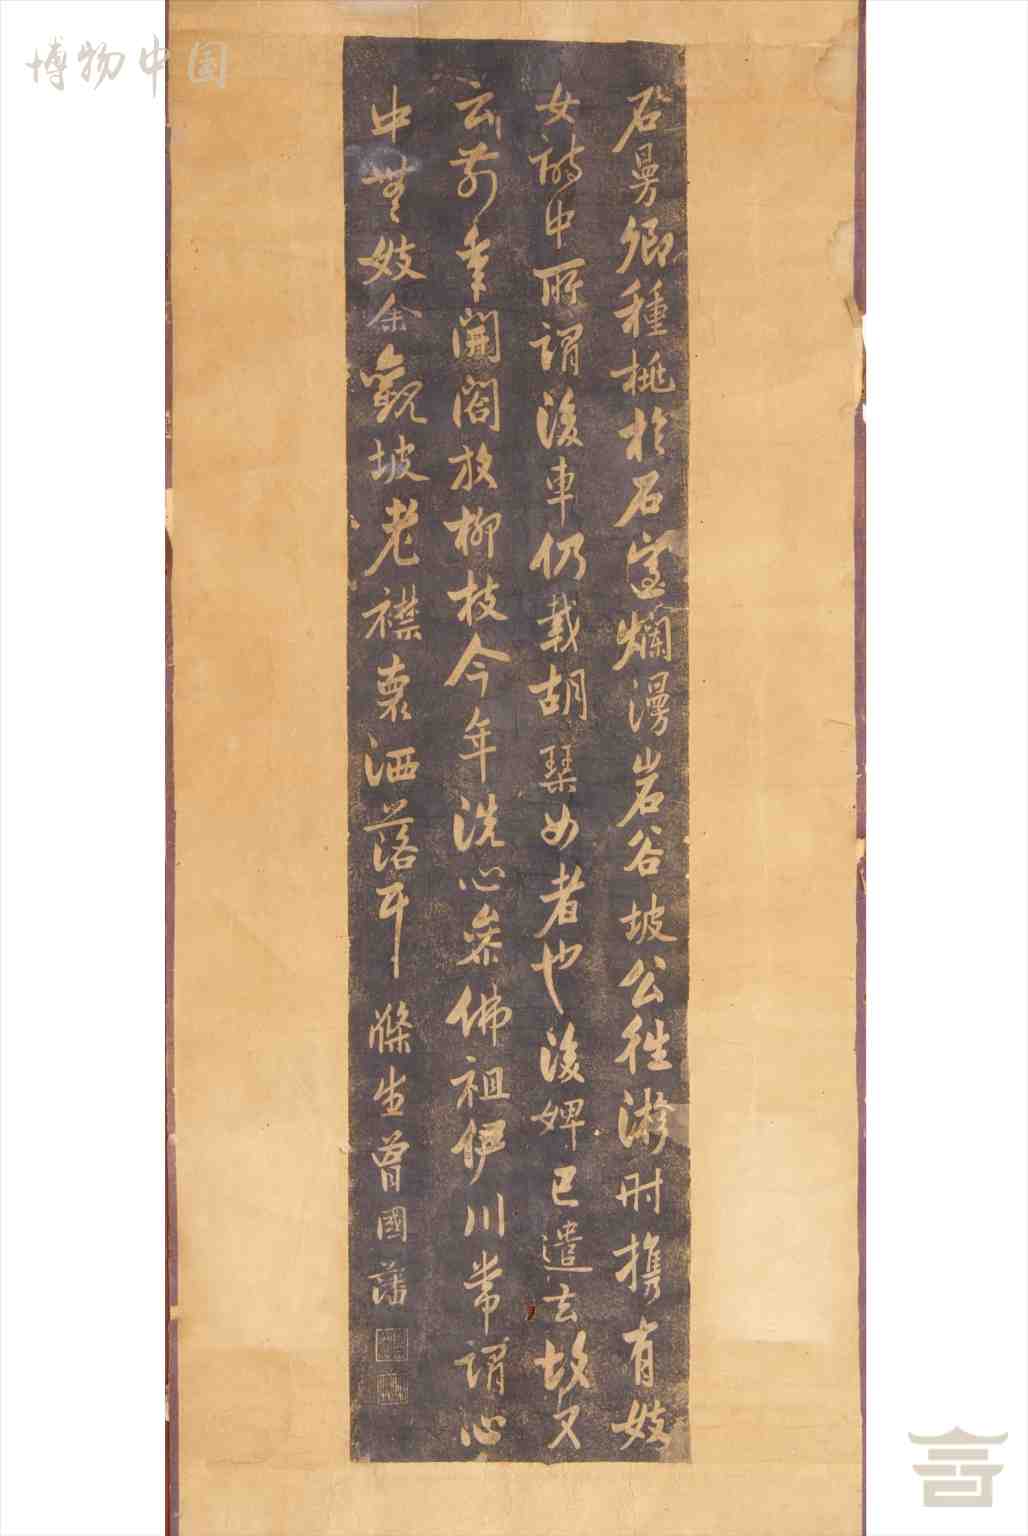 博物中国
石曼卿種桃於石室爛漫岩谷坡公往游時携有妓
女詩中所謂後車仍載胡琴女者也後婢已遣去故又
云前年開閤放柳枝今年洗心參佛祖伊川常謂心
中無妓余觀坡老襟裏洒落耳 滌生曾國藩